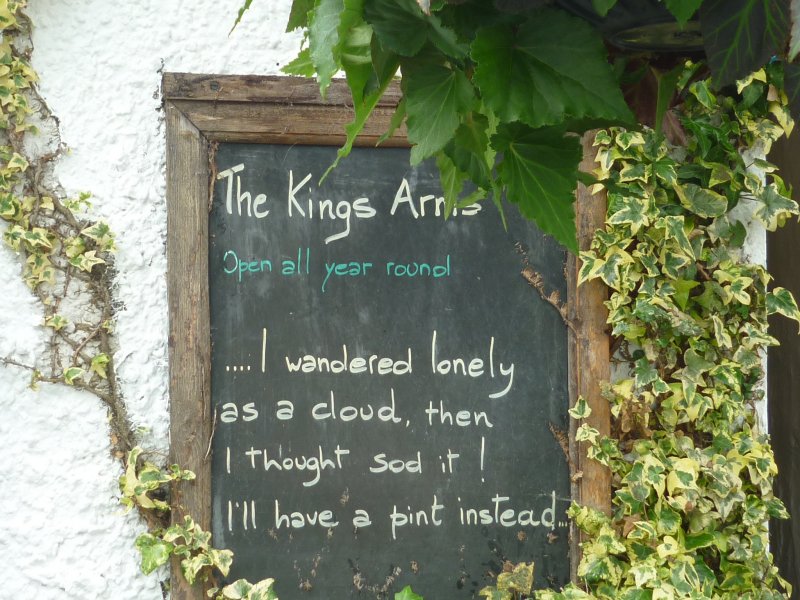 The Kings Arms
Open all year round
.... I wandered lonely
as a cloud, then
I thought sod it !
I'll have a pint instead...